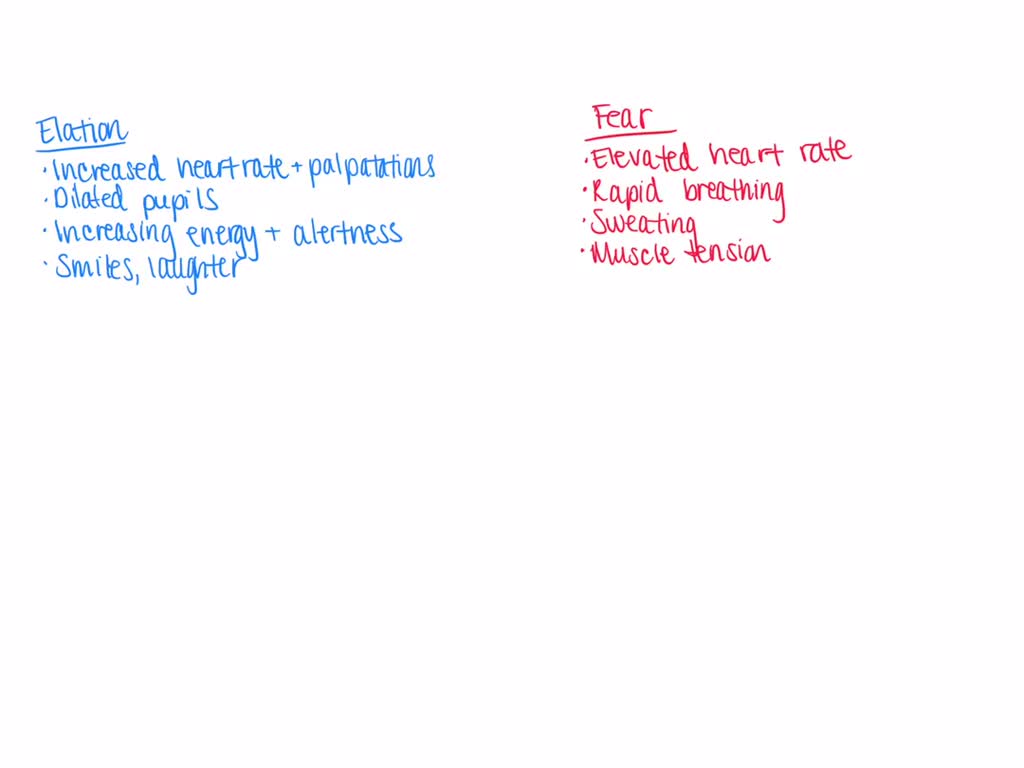 Elation
· Increased heart rate + palpatations
· Dilated pupils
· Increasing energy + alertness
· Smiles, laughter
Fear
· Elevated heart rate
· Rapid breathing
· Sweating
· Muscle tension